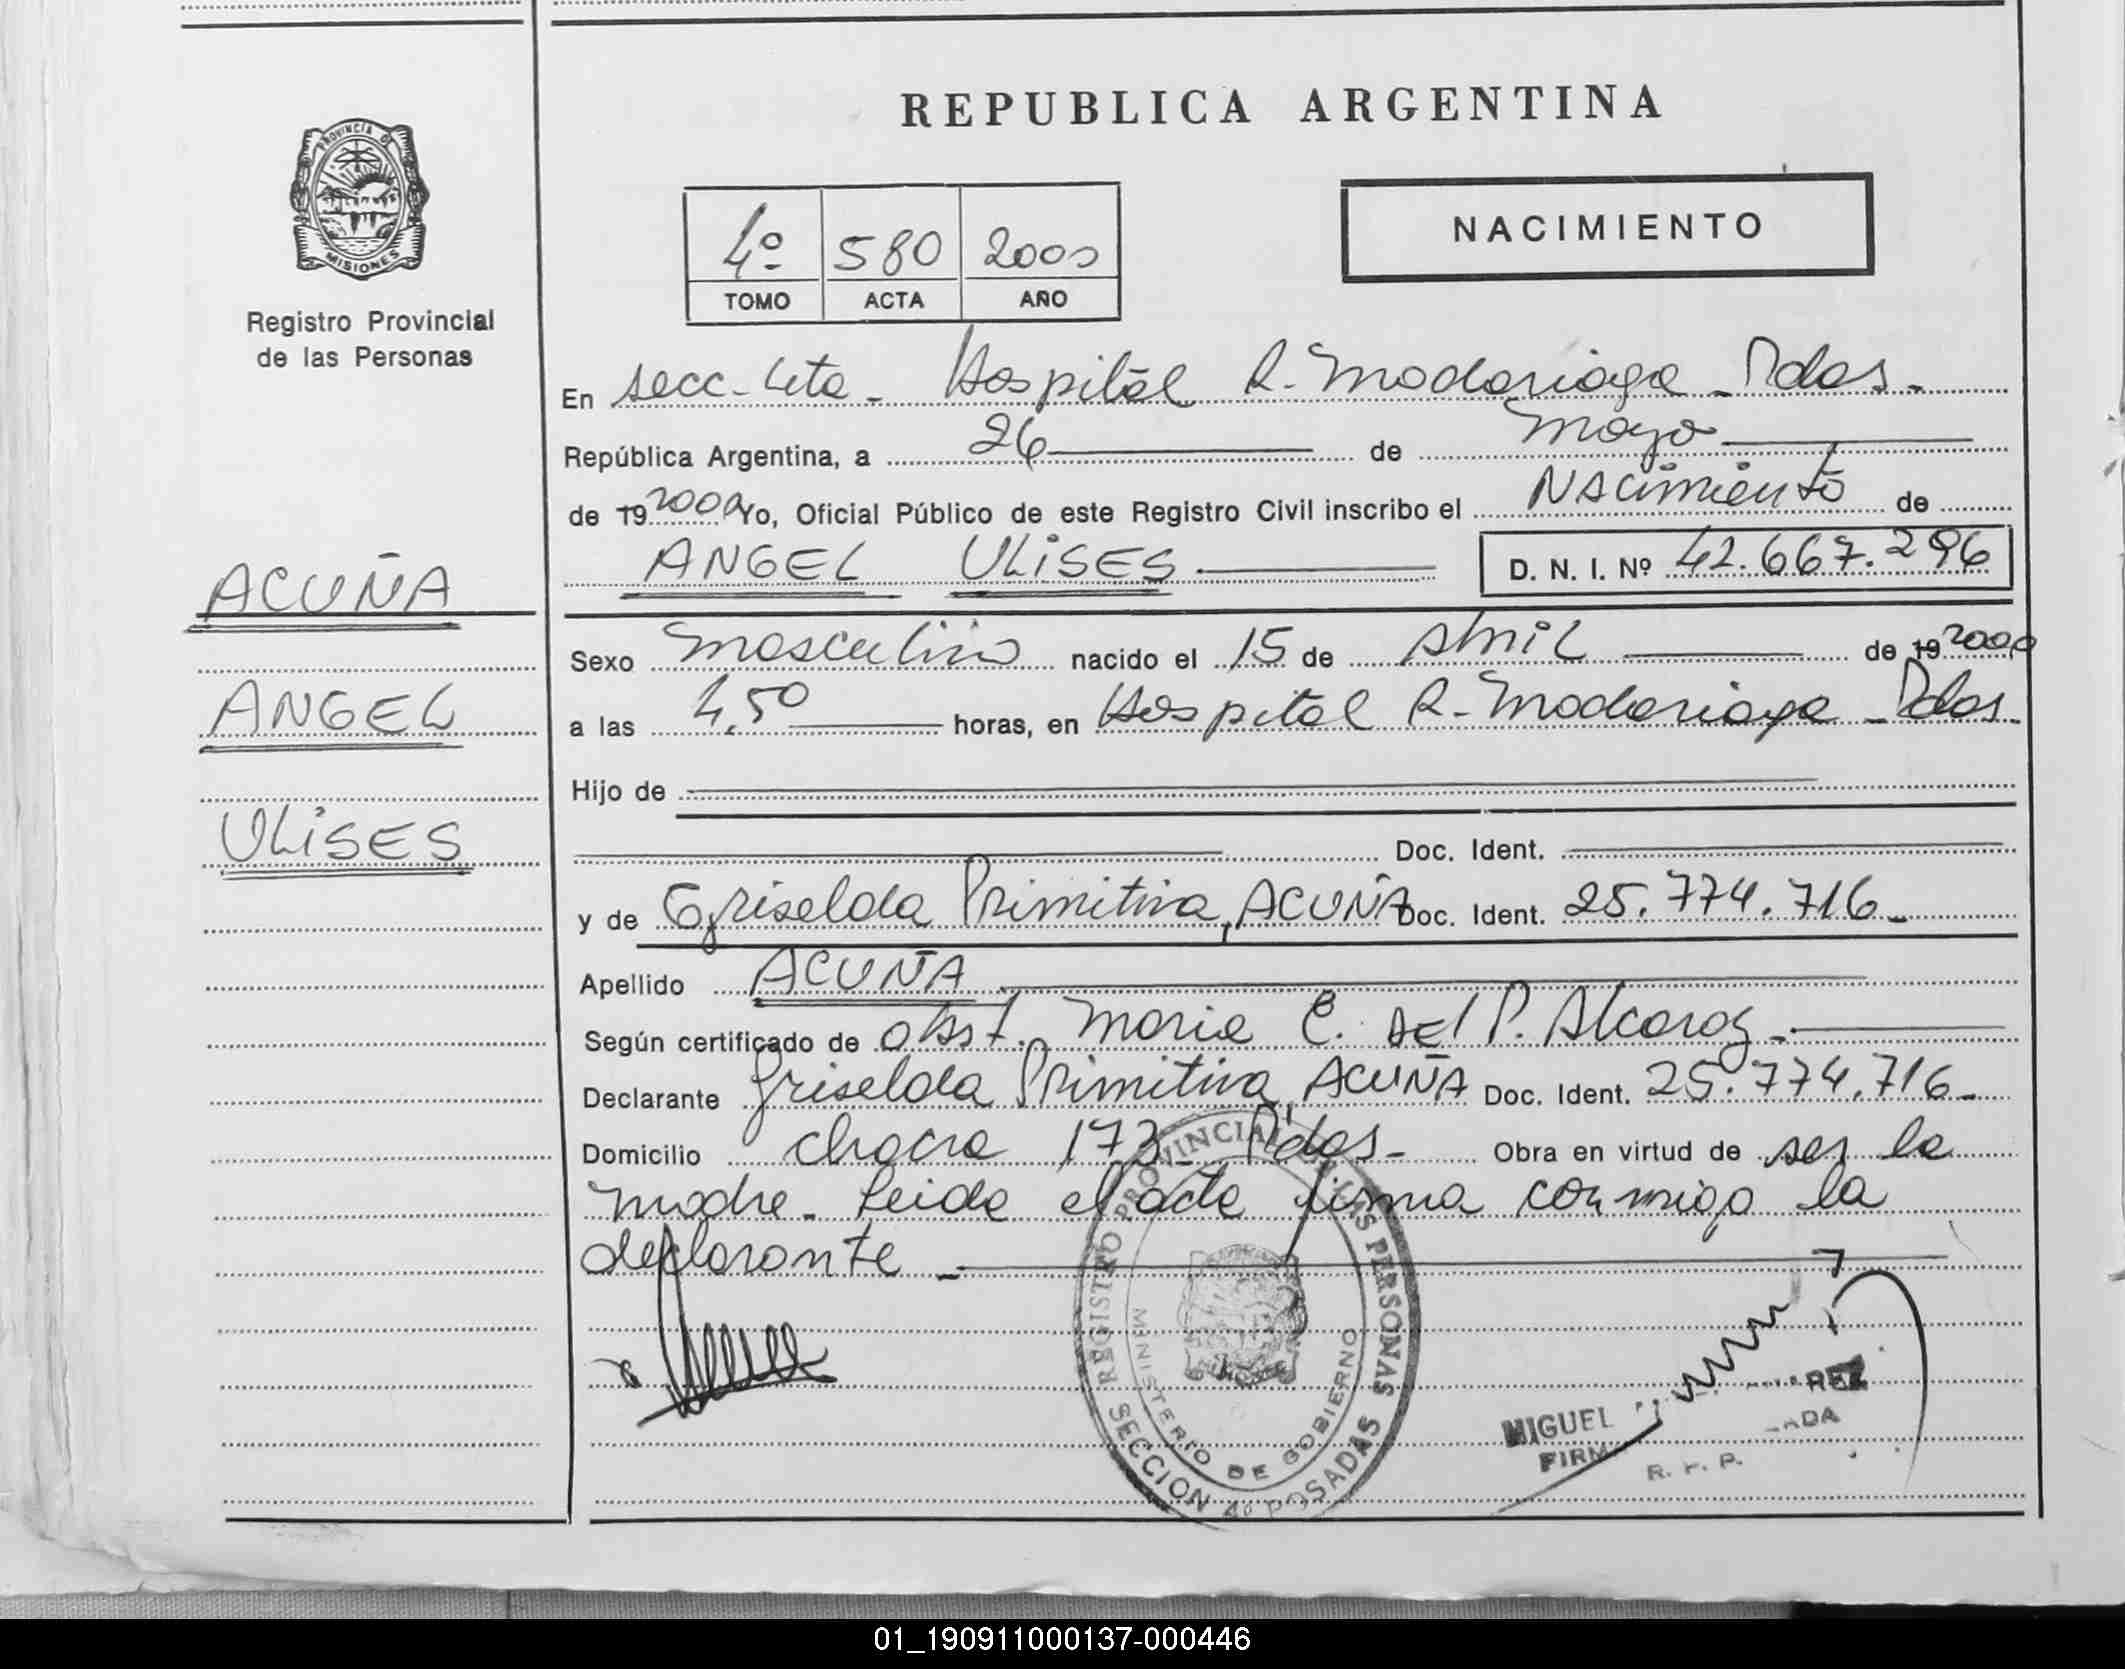 REPUBLICA ARGENTINA
PROVINCIA DE MISIONES
Registro Provincial
de las Personas
4º 580 2000
TOMO ACTA AÑO
NACIMIENTO
En secc. 4ta - Hospital R. Madariaga - Pdas.
República Argentina, a 26 de Mayo
de 19 2000 Yo, Oficial Público de este Registro Civil inscribo el Nacimiento de
ANGEL ULISES D. N. I. Nº 42.667.296
ACUÑA
ANGEL
ULISES
Sexo Masculino nacido el 15 de Abril de 19 2000
a las 4,50 horas, en Hospital R. Madariaga - Pdas.
Hijo de
Doc. Ident.
y de Griselda Primitiva, ACUÑA Doc. Ident. 25.774.716-
Apellido ACUÑA
Según certificado de obst. Maria C. del P. Alcaraz.-
Declarante Griselda Primitiva ACUÑA Doc. Ident. 25.774.716-
Domicilio chacra 173 - Pdas - Obra en virtud de ser la
madre - Leida el acta firma conmigo la
declarante -
REGISTRO PROVINCIAL DE LAS PERSONAS
MINISTERIO DE GOBIERNO
SECCION 4º POSADAS
MIGUEL
FIRM
R. P. P.
01_190911000137-000446